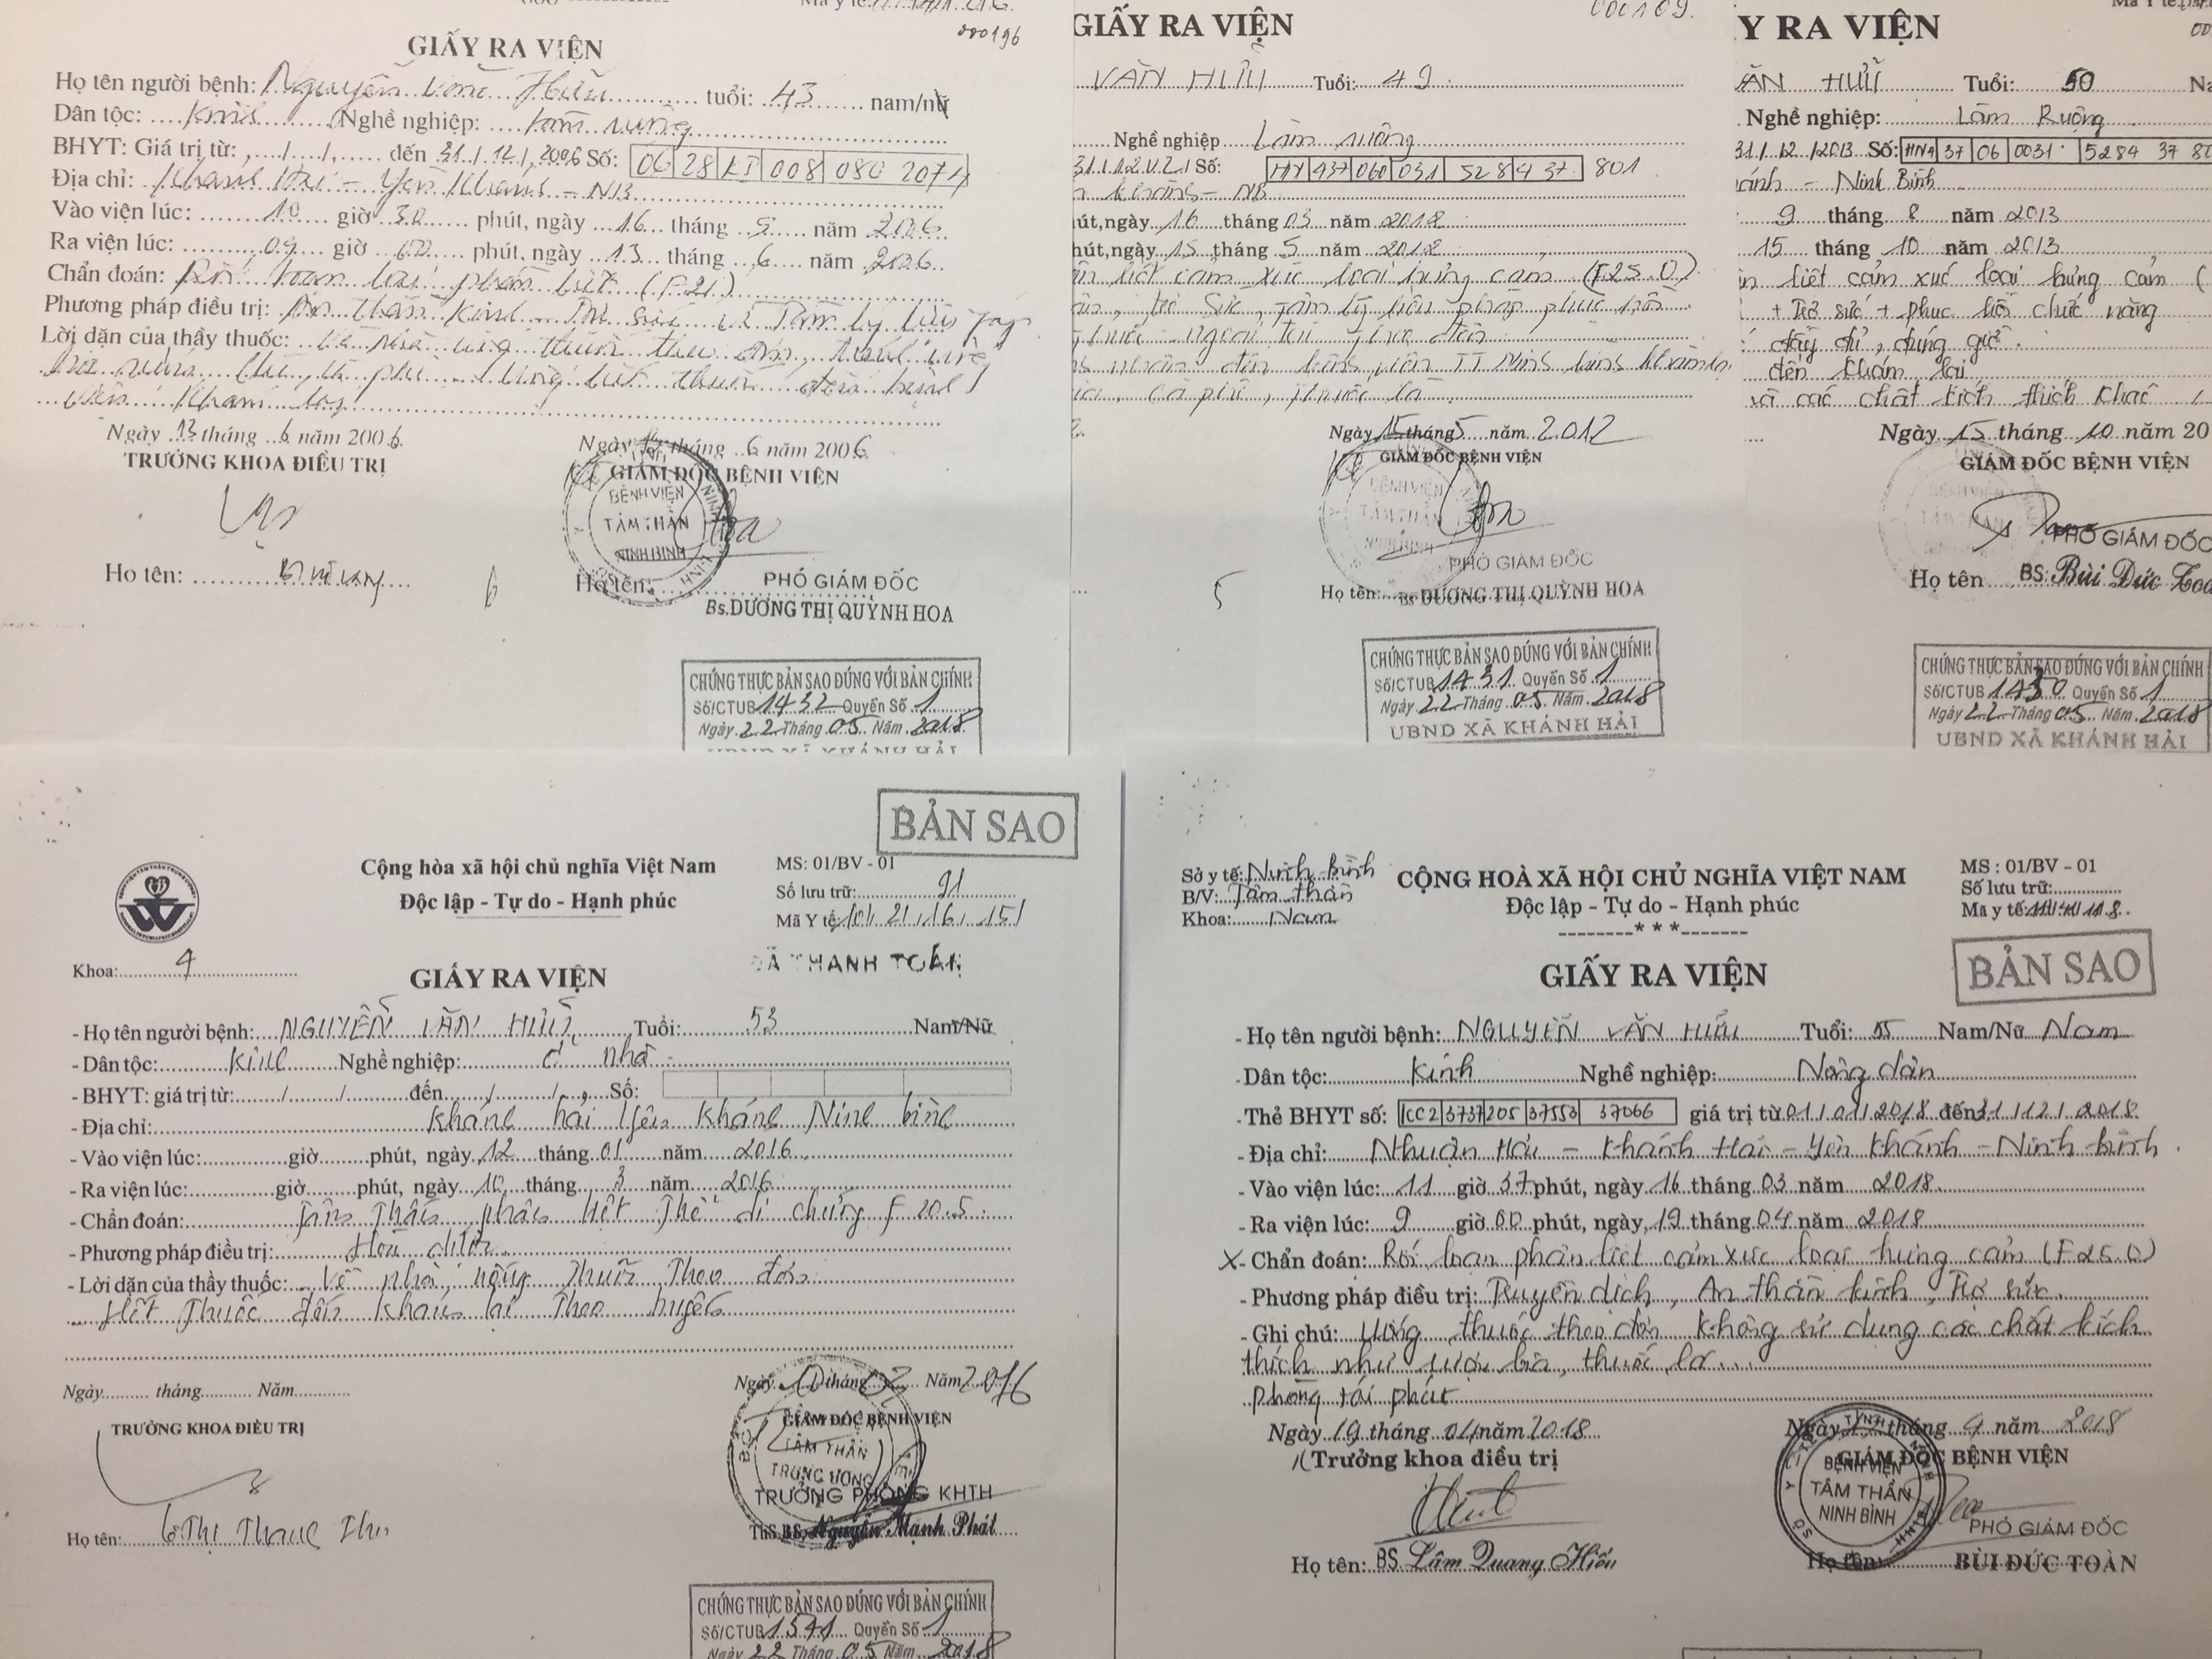 000196
GIẤY RA VIỆN
Họ tên người bệnh: Nguyễn Văn Hữu tuổi: 43 nam/nữ
Dân tộc: Kinh Nghề nghiệp: Làm ruộng
BHYT: Giá trị từ: ..../..../..... đến 31/12/2006 Số: 06 28 KI 008 080 2074
Địa chỉ: Khánh Hải - Yên Khánh - NB
Vào viện lúc: 10 giờ 30 phút, ngày 16 tháng 5 năm 2006
Ra viện lúc: 09 giờ 00 phút, ngày 13 tháng 6 năm 2006
Chẩn đoán: Rối loạn loại phân liệt (F21)
Phương pháp điều trị: An thần kinh
Lời dặn của thầy thuốc: Về nhà uống thuốc theo đơn,
viện khám lại
Ngày 13 tháng 6 năm 2006
TRƯỞNG KHOA ĐIỀU TRỊ
Họ tên:
Ngày tháng 6 năm 2006
GIÁM ĐỐC BỆNH VIỆN
BỆNH VIỆN
TÂM THẦN
NINH BÌNH
Họ tên:
PHÓ GIÁM ĐỐC
Bs.DƯƠNG THỊ QUỲNH HOA
CHỨNG THỰC BẢN SAO ĐÚNG VỚI BẢN CHÍNH
Số/CTUB 1432 Quyển Số 1
Ngày 22 Tháng 05 Năm 2018
UBND XÃ KHÁNH HẢI
000109.
GIẤY RA VIỆN
VĂN HỮU Tuổi: 49
Nghề nghiệp Làm ruộng
Số: HN 437 060 031 528 4 37 801
n Khánh - NB
hút, ngày 16 tháng 03 năm 2012
hút, ngày 15 tháng 5 năm 2012
ân liệt cảm xúc loại hưng cảm (F25.0)
trợ sức, tâm lý liệu pháp phục hồi
cà phê, thuốc lá
Ngày 15 tháng 5 năm 2012
GIÁM ĐỐC BỆNH VIỆN
PHÓ GIÁM ĐỐC
Họ tên: Bs DƯƠNG THỊ QUỲNH HOA
5
CHỨNG THỰC BẢN SAO ĐÚNG VỚI BẢN CHÍNH
Số/CTUB 1431 Quyển Số 1
Ngày 22 Tháng 05 Năm 2018
UBND XÃ KHÁNH HẢI
Y RA VIỆN
ĂN HỮU Tuổi: 50 Na
Nghề nghiệp: Làm Ruộng
31/12/2013 Số: HN4 37 06 0031 5284 37 80
ánh - Ninh Bình
9 tháng 8 năm 2013
15 tháng 10 năm 2013
n liệt cảm xúc loại hưng cảm (
+ Trợ sức + phục hồi chức năng
đầy đủ, đúng giờ.
đến khám lại
và các chất kích thích khác
Ngày 15 tháng 10 năm 20
GIÁM ĐỐC BỆNH VIỆN
PHÓ GIÁM ĐỐC
Họ tên BS: Bùi Đức Toà
CHỨNG THỰC BẢN SAO ĐÚNG VỚI BẢN CHÍNH
Số/CTUB 1430 Quyển Số 1
Ngày 22 Tháng 05 Năm 2018
UBND XÃ KHÁNH HẢI
BẢN SAO
Cộng hòa xã hội chủ nghĩa Việt Nam
Độc lập - Tự do - Hạnh phúc
MS: 01/BV - 01
Số lưu trữ: 91
Mã Y tế: 101/21/16/151
Khoa: 4
GIẤY RA VIỆN
ĐÃ THANH TOÁN
- Họ tên người bệnh: NGUYỄN VĂN HỮU Tuổi: 53 Nam/Nữ
- Dân tộc: Kinh Nghề nghiệp: ở nhà
- BHYT: giá trị từ:....../....../...... đến....../....../...... Số:
- Địa chỉ: Khánh hải Yên Khánh Ninh bình
- Vào viện lúc: giờ phút, ngày 12 tháng 01 năm 2016
- Ra viện lúc: giờ phút, ngày 10 tháng 3 năm 2016
- Chẩn đoán: Tâm Thần phân liệt Thể di chứng F 20.5
- Phương pháp điều trị: Hóa dược
- Lời dặn của thầy thuốc: Về nhà uống Thuốc Theo đơn
Hết Thuốc đến khám lại Theo tuyến
Ngày......... tháng.......... Năm...........
TRƯỞNG KHOA ĐIỀU TRỊ
Họ tên:
Ngày 10 tháng Năm 2016
GIÁM ĐỐC BỆNH VIỆN
TÂM THẦN
TRUNG ƯƠNG
TRƯỞNG PHÒNG KHTH
ThS.BS. Nguyễn Mạnh Phát
CHỨNG THỰC BẢN SAO ĐÚNG VỚI BẢN CHÍNH
Số/CTUB 1541 Quyển Số 1
Ngày 22 Tháng 05 Năm 2018
Sở y tế: Ninh bình
B/V: Tâm thần
Khoa: Nam
CỘNG HOÀ XÃ HỘI CHỦ NGHĨA VIỆT NAM
Độc lập - Tự do - Hạnh phúc
--------***-------
MS : 01/BV - 01
Số lưu trữ:
Mã y tế:
GIẤY RA VIỆN
BẢN SAO
- Họ tên người bệnh: NGUYỄN VĂN HỮU Tuổi: 55 Nam/Nữ Nam
- Dân tộc: Kinh Nghề nghiệp: Nông dân
- Thẻ BHYT số: CC2 3737 205 37553 37066 giá trị từ 01/01/2018 đến 31/12/2018
- Địa chỉ: Nhuận Hải - Khánh Hải - Yên Khánh - Ninh bình.
- Vào viện lúc: 11 giờ 37 phút, ngày 16 tháng 03 năm 2018
- Ra viện lúc: 9 giờ 00 phút, ngày 19 tháng 04 năm 2018
X- Chẩn đoán: Rối loạn phân liệt cảm xúc loại hưng cảm (F25.0)
- Phương pháp điều trị: Truyền dịch, An thần kinh, Trợ sức.
- Ghi chú: Uống thuốc theo đơn không sử dụng các chất kích
thích như rượu bia, thuốc lá...
phòng tái phát
Ngày 19 tháng 04 năm 2018
Trưởng khoa điều trị
Họ tên: BS. Lâm Quang Hiếu
Ngày tháng 4 năm 2018
GIÁM ĐỐC BỆNH VIỆN
BỆNH VIỆN
TÂM THẦN
NINH BÌNH
PHÓ GIÁM ĐỐC
Họ tên: BÙI ĐỨC TOÀN